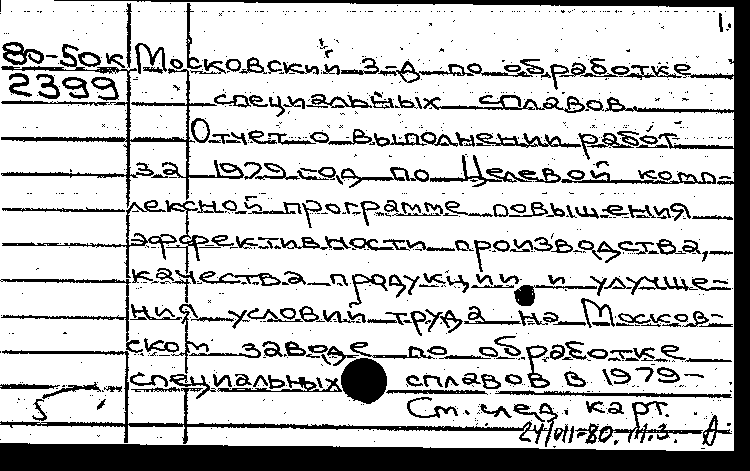 1.
80-50к Московский з-д по обработке
2399
специальных сплавов.
Отчет о выполнении работ
за 1979 год по Целевой комп-
лексной программе повышения
эффективности производства,
качества продукции и улучше-
ния условий труда на Москов-
ском заводе по обработке
специальных сплавов в 1979-
5 См. след. карт.
24/VII-80. М.З. А